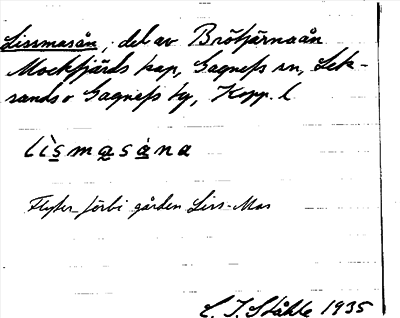 Lissmasån, del av Brötjärnaån
Mockfjärds kap, Gagnefs sn, Lek-
sands o Gagnefs tg, Kopp. l
lìs̲ma̲sa̲̍na
Flyter förbi gården Liss-Mas
C. I. Ståhle 1935